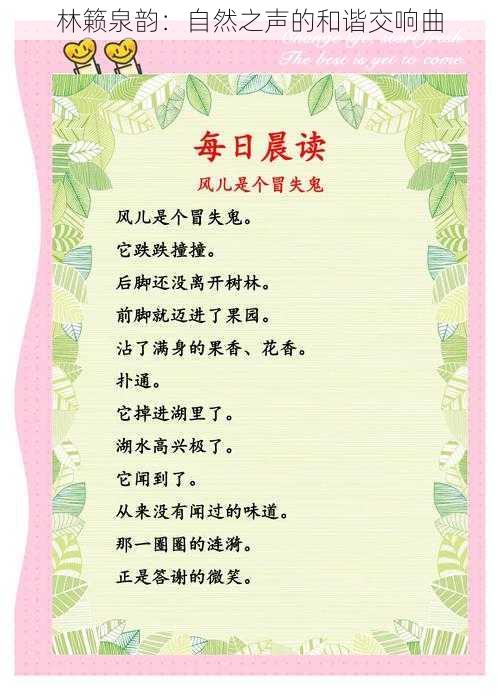 林籁泉韵：自然之声的和谐交响曲
The best is yet to come
每日晨读
风儿是个冒失鬼
风儿是个冒失鬼。
它跌跌撞撞。
后脚还没离开树林。
前脚就迈进了果园。
沾了满身的果香、花香。
扑通。
它掉进湖里了。
湖水高兴极了。
它闻到了。
从来没有闻过的味道。
那一圈圈的涟漪。
正是答谢的微笑。